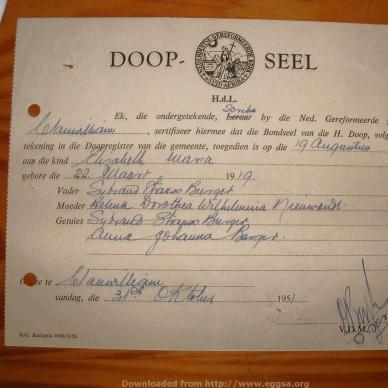 DOOP- SEEL
H.d.L.
Scriba
Ek, die ondergetekende, Leraar by die Ned. Gereformeerde
Clanwilliam, sertifiseer hiermee dat die Bondseel van die H. Doop, volg
tekening in die Doopregister van die gemeente, toegedien is op die 19 Augustus
aan die kind Elizabeth Maria
gebore die 22 Maart 1919.
Vader Sybrand Burger
Moeder Helena Dorothea Wilhelmina Nieuwoudt.
Getuies Sybrand Burger
Anna Johanna Burger.
te Clanwilliam
vandag, die 31ste Oktober 195
V.D.M.
N.G. Kerkamn
Downloaded from http://www.eggsa.org